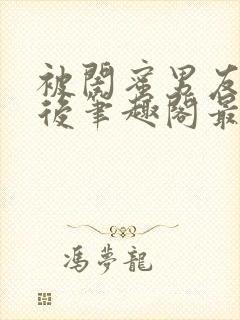 被閨蜜男友
後筆趣閣最
馮夢龍